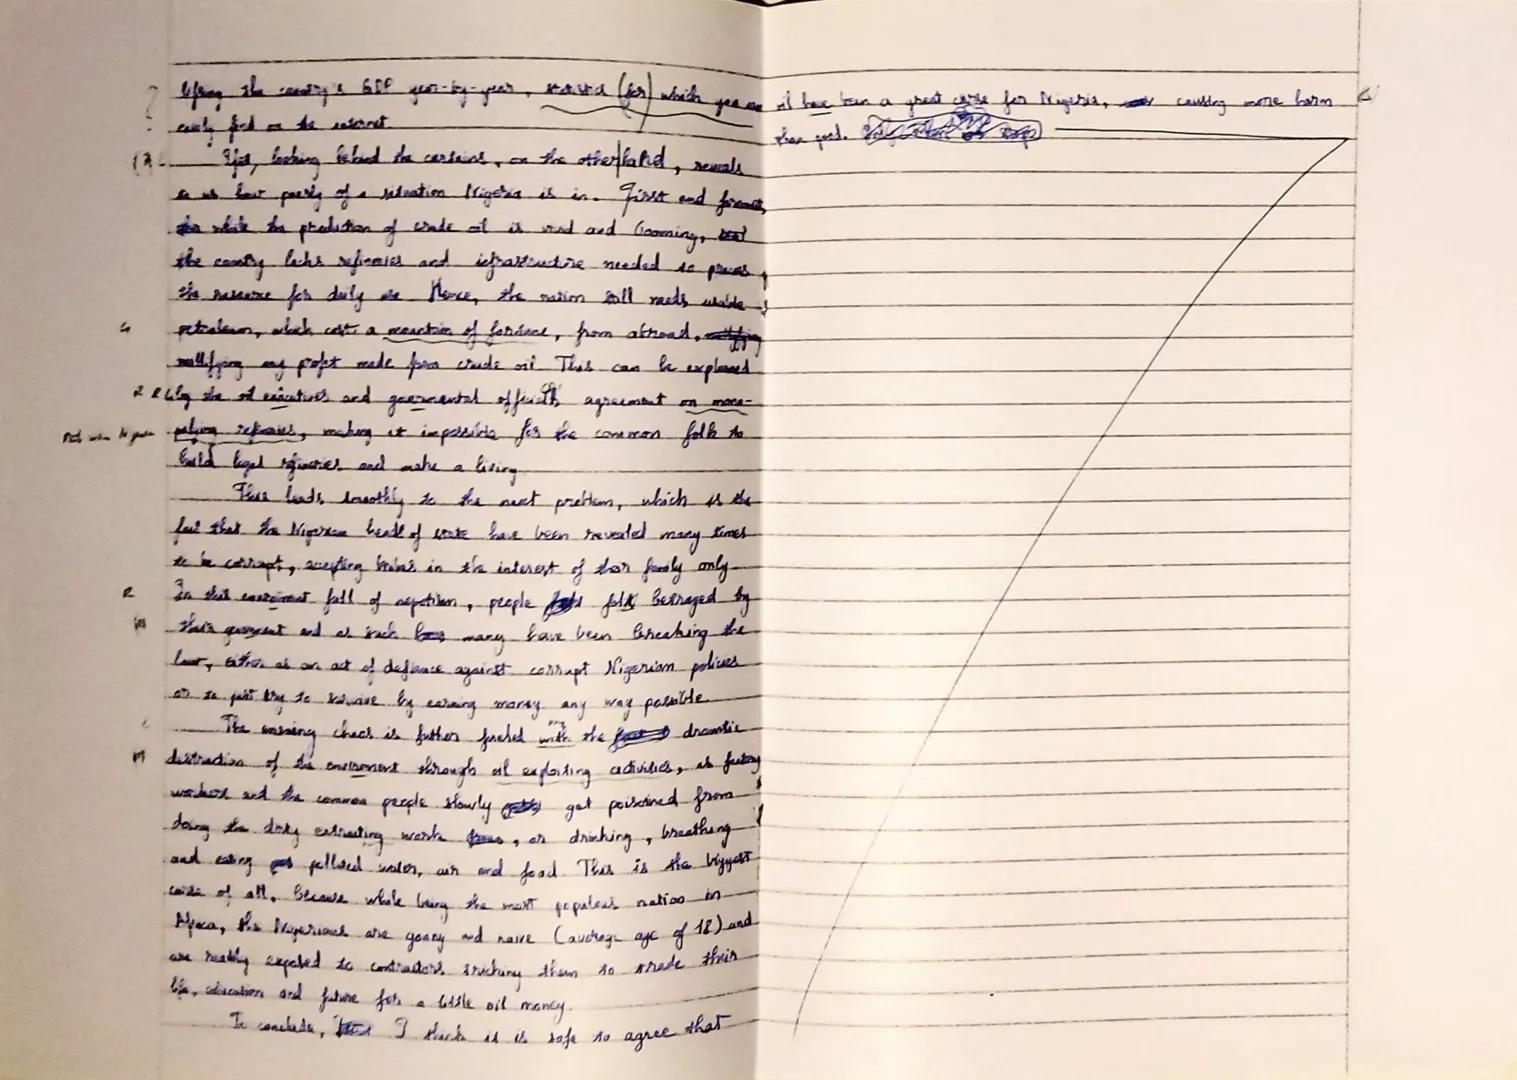 lifting the country's GDP year-by-year, statistic (for) which you can
easily find on the internet.
Yet, looking behind the curtains, on the other hand, reveals
to us how poorly of a situation Nigeria is in. First and foremost,
while the production of crude oil is vivid and booming,
the country lacks refineries and infrastructure needed to process
the resource for daily use. Hence, the nation still needs usable
petroleum, which cost a mountain of fortune, from abroad,
nullifying any profit made from crude oil. This can be explained
by the oil executives and governmental officials agreement on mono-
polying refineries, making it impossible for the common folk to
build legal refineries and make a living.
This leads smoothly to the next problem, which is the
fact that the Nigerian head of state have been revealed many times
to be corrupt, accepting bribes in the interest of their family only.
In that environment full of nepotism, people felt betrayed by
their government and as such many have been breaking the
law, either as an act of defiance against corrupt Nigerian policies
or to just try to survive by earning money any way possible.
The ensuing chaos is futher fueled with the dramatic
destruction of the environment through oil exploiting activities, as factory
workers and the common people slowly get poisoned from
doing the dirty extracting work, or drinking, breathing
and eating polluted water, air and food. This is the biggest
curse of all, because while being the most populous nation in
Africa, the Nigerians are young and naive (average age of 18) and
are readily exposed to contractors tricking them to trade their
life, education and future for a little oil money.
To conclude, I think it is safe to agree that
oil have been a great curse for Nigeria, causing more harm
than good.